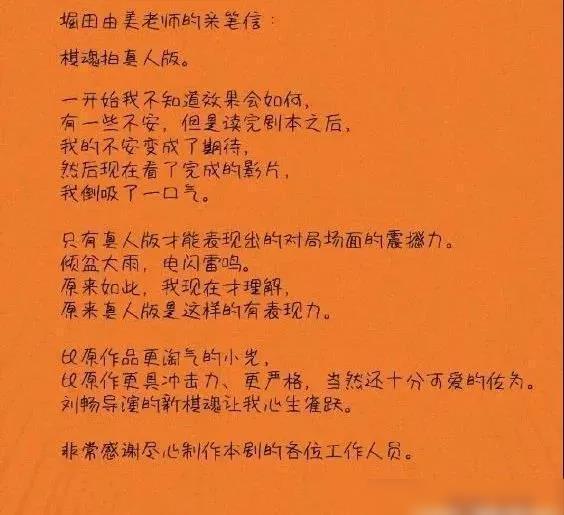 堀田由美老师的亲笔信：
棋魂拍真人版。
一开始我不知道效果会如何，
有一些不安，但是读完剧本之后，
我的不安变成了期待，
然后现在看了完成的影片，
我倒吸了一口气。
只有真人版才能表现出的对局场面的震撼力。
倾盆大雨，电闪雷鸣。
原来如此，我现在才理解，
原来真人版是这样的有表现力。
比原作品更淘气的小光，
比原作更具冲击力、更严格，当然还十分可爱的佐为。
刘畅导演的新棋魂让我心生雀跃。
非常感谢尽心制作本剧的各位工作人员。